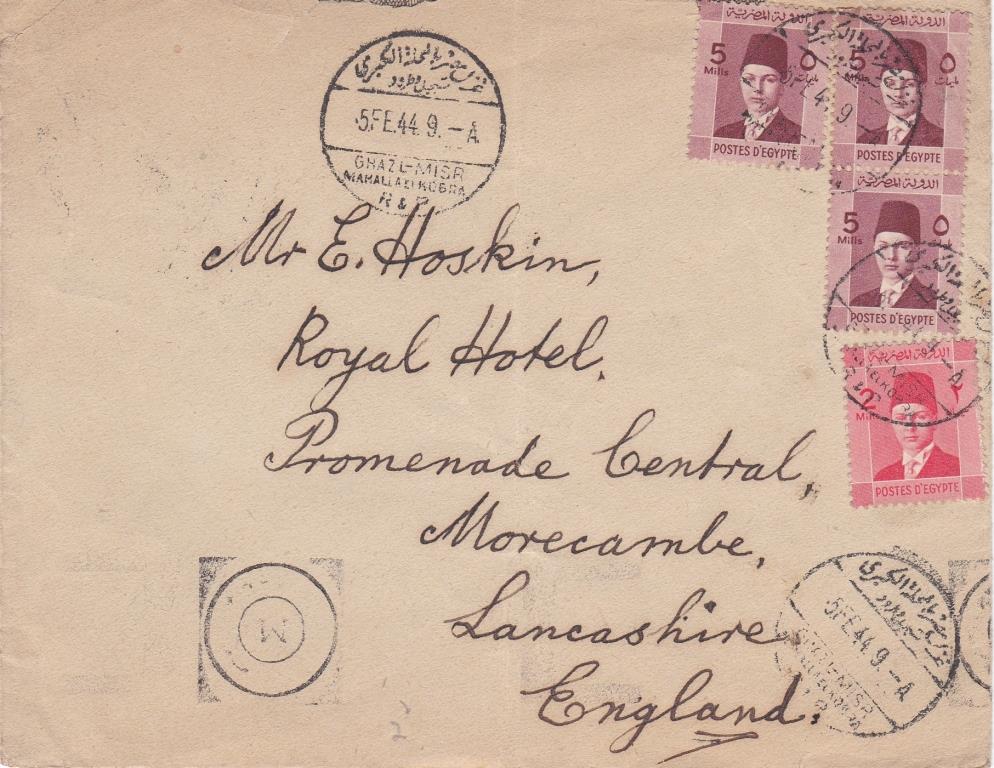 غزل مصر بالمحلة الكبرى
مسجل وطرود
5FE.44.9.-A
GHAZL-MISR
MAHALLA EL KOBRA
R & P
الدولة المصرية
5 ٥
Mills مليمات
POSTES D'EGYPTE
الدولة المصرية
5 ٥
Mills مليمات
POSTES D'EGYPTE
الدولة المصرية
5 ٥
Mills
POSTES D'EGYPTE
الدولة المصرية
2 ٢
Mills
POSTES D'EGYPTE
Mr E. Hoskin,
Royal Hotel,
Promenade Central,
Morecambe,
Lancashire
England.
M
غزل مصر بالمحلة الكبرى
5FE.44.9.-A
GHAZL-MISR
2